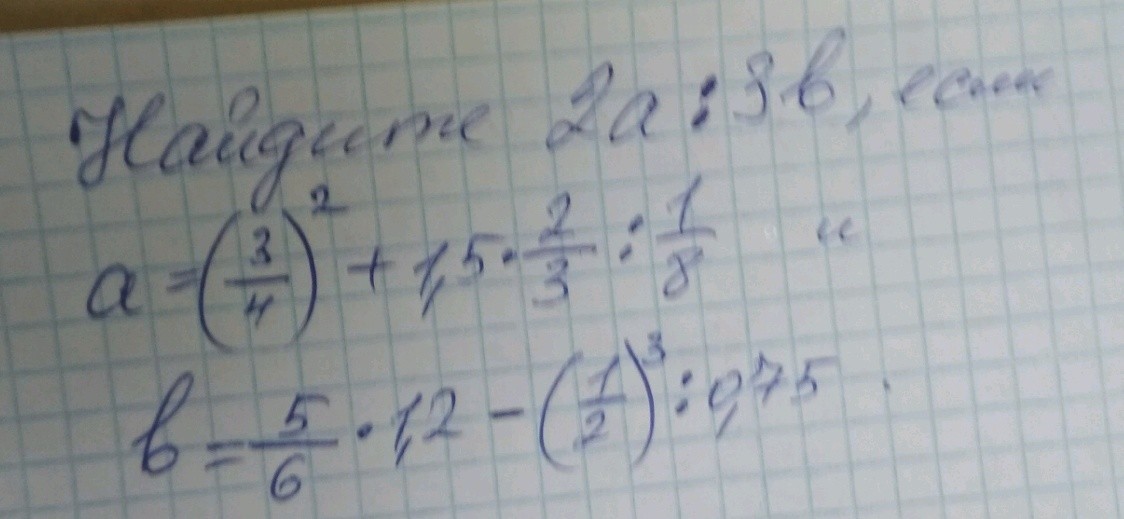 Найдите 2a : 3b, если
a = (3/4)² + 1,5 · 2/3 : 1/8 и
b = 5/6 · 1,2 - (1/2)³ : 0,75.